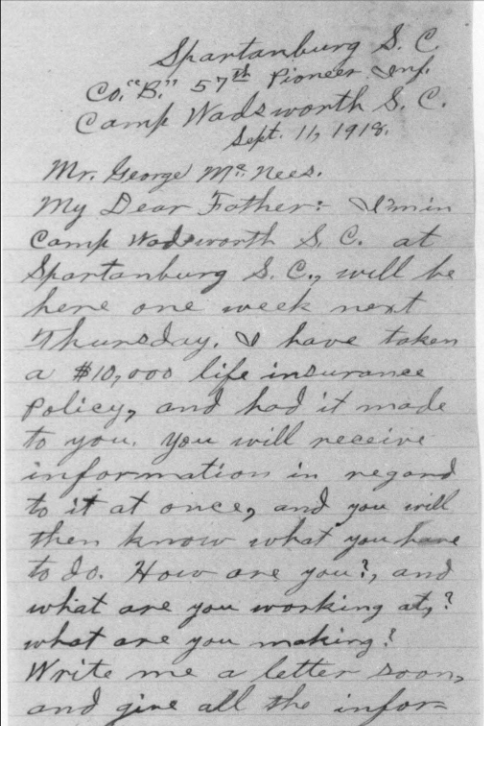 Spartanburg S. C.
Co. "B." 57th Pioneer Inf.
Camp Wadsworth S. C.
Sept. 11, 1918.
Mr. George Mc.Nees.
My Dear Father: I am in
Camp Wadsworth S. C. at
Spartanburg S. C., will be
here one week next
Thursday. I have taken
a $10,000 life insurance
policy, and had it made
to you. You will receive
information in regard
to it at once, and you will
then know what you have
to do. How are you?, and
what are you working at,?
what are you making?
Write me a letter soon,
and give all the infor=